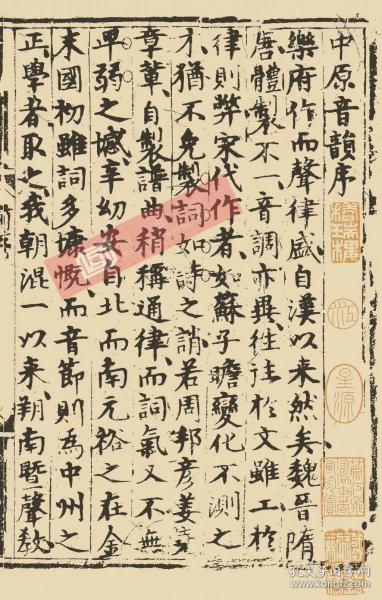 中原音韻序
樂府作而聲律盛自漢以来然矣魏晉隋
唐體製不一音調亦異徃徃扵文雖工扵
律則弊宋代作者如蘇子瞻變化不測之
才猶不免製詞如詩之誚若周邦彦姜
章軰自製譜曲稍稱通律而詞氣又不無
卑弱之憾辛幼安自北而南元裕之在金
末國初雖詞多慷慨而音節則為中州之
正學者取之我朝混一以来朔南暨聲教
稽瑞樓